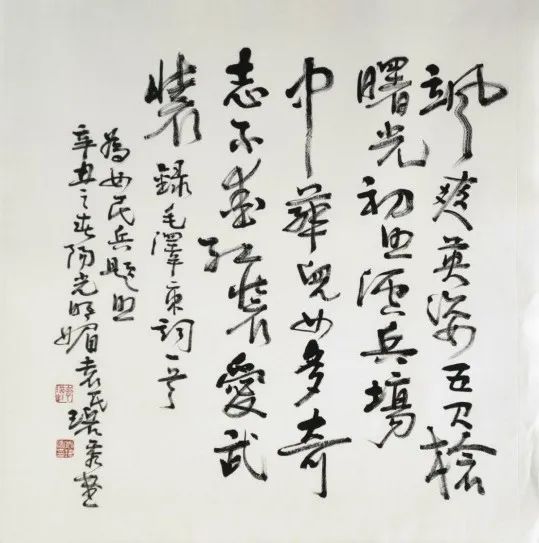 颯爽英姿五尺槍
曙光初照演兵場
中華兒女多奇
志不愛紅裝愛武
裝 錄毛澤東詞一首
為女民兵題照
辛丑之春陽光明媚袁氏